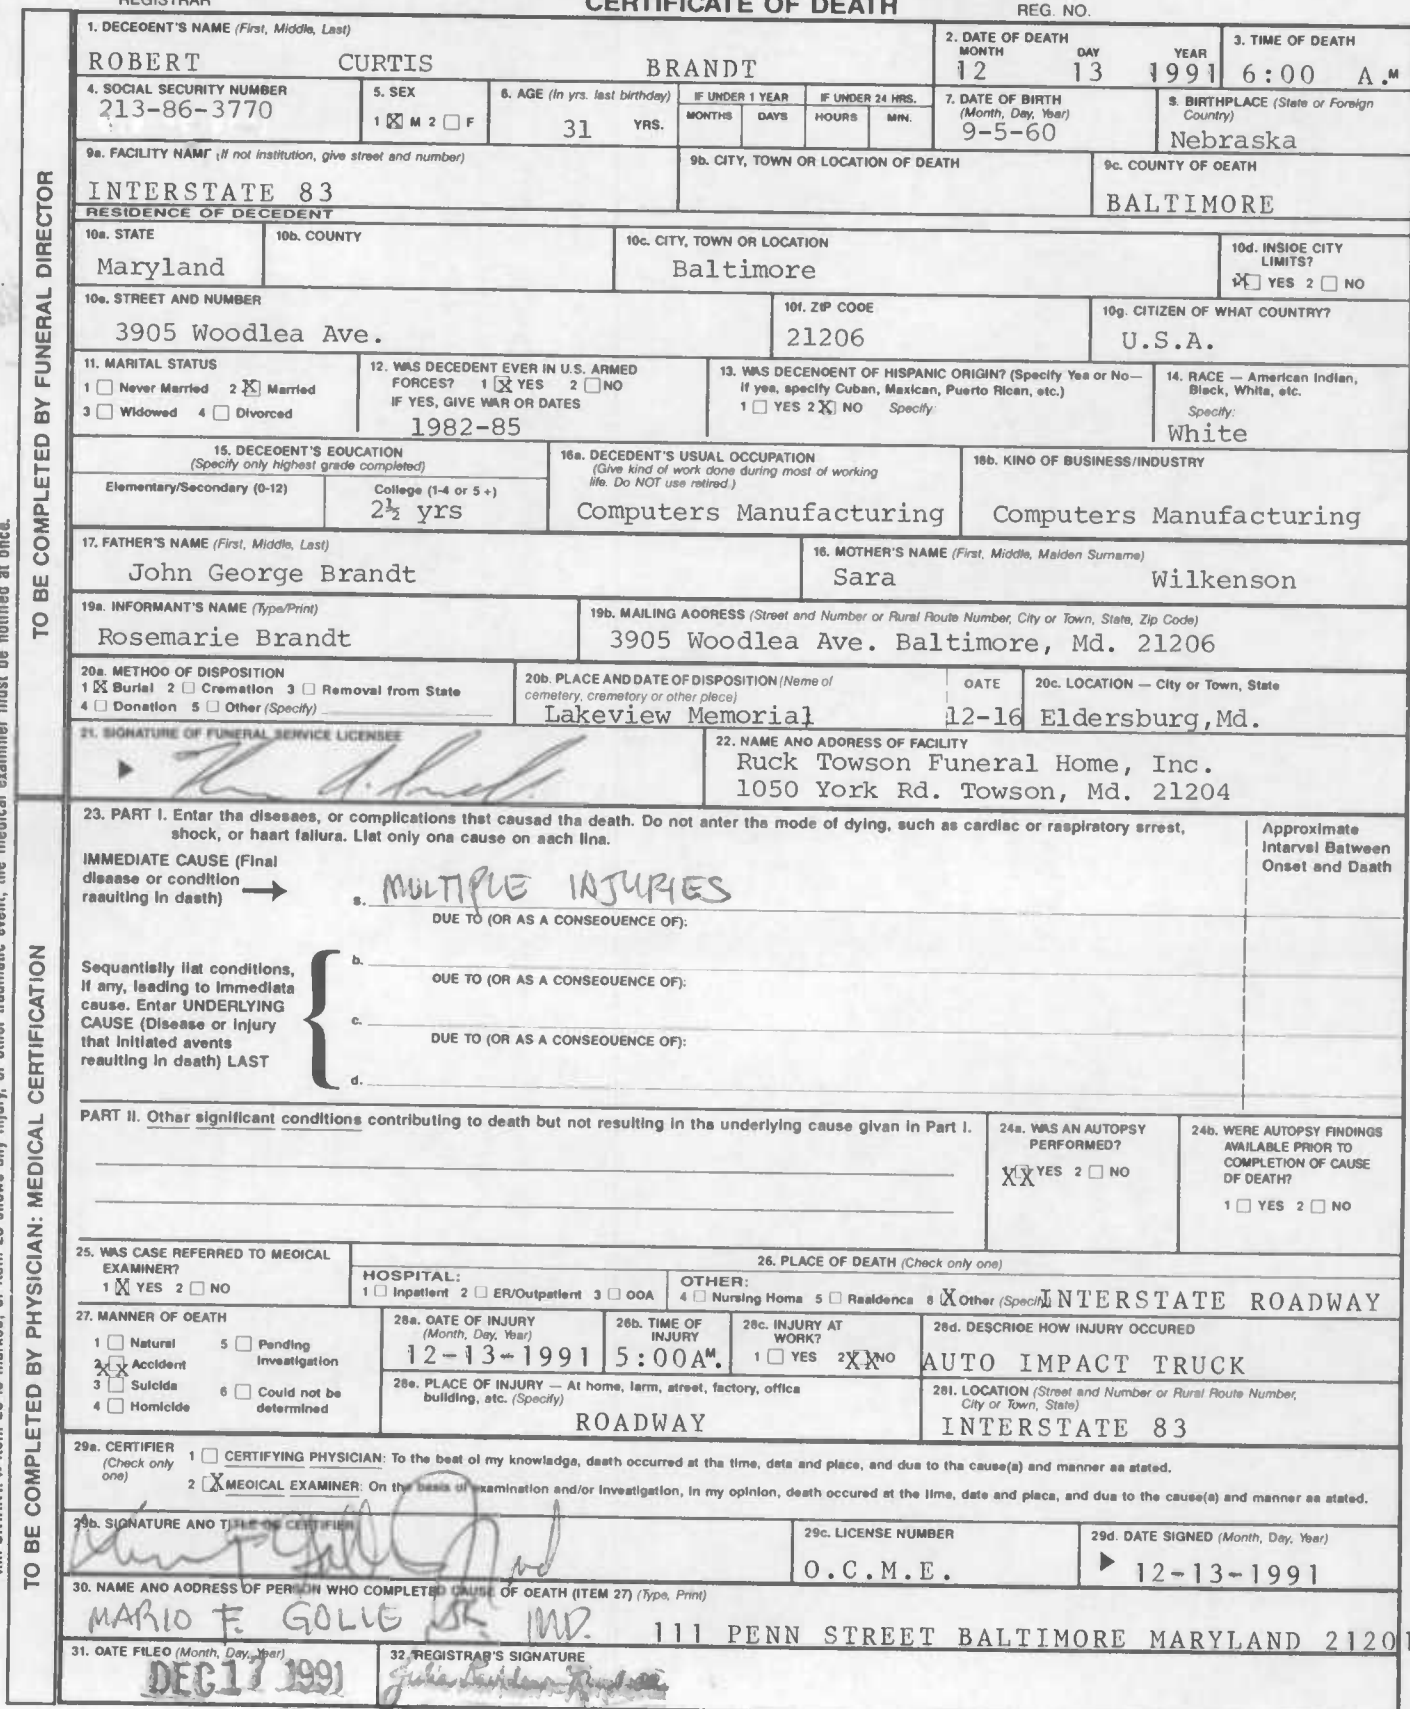 REGISTRAR
CERTIFICATE OF DEATH
REG. NO.
1. DECEDENT'S NAME (First, Middle, Last)
ROBERT CURTIS BRANDT
2. DATE OF DEATH
MONTH DAY YEAR
12 13 1991
3. TIME OF DEATH
6:00 A.M
4. SOCIAL SECURITY NUMBER
213-86-3770
5. SEX
1 X M 2 F
6. AGE (In yrs. last birthday)
31 YRS.
IF UNDER 1 YEAR
MONTHS DAYS
IF UNDER 24 HRS.
HOURS MIN.
7. DATE OF BIRTH
(Month, Day, Year)
9-5-60
8. BIRTHPLACE (State or Foreign Country)
Nebraska
9a. FACILITY NAME (If not institution, give street and number)
INTERSTATE 83
9b. CITY, TOWN OR LOCATION OF DEATH
9c. COUNTY OF DEATH
BALTIMORE
RESIDENCE OF DECEDENT
10a. STATE
Maryland
10b. COUNTY
10c. CITY, TOWN OR LOCATION
Baltimore
10d. INSIDE CITY LIMITS?
X YES 2 NO
10e. STREET AND NUMBER
3905 Woodlea Ave.
10f. ZIP CODE
21206
10g. CITIZEN OF WHAT COUNTRY?
U.S.A.
11. MARITAL STATUS
1 Never Married 2 X Married
3 Widowed 4 Divorced
12. WAS DECEDENT EVER IN U.S. ARMED
FORCES? 1 X YES 2 NO
IF YES, GIVE WAR OR DATES
1982-85
13. WAS DECENDENT OF HISPANIC ORIGIN? (Specify Yes or No—
If yes, specify Cuban, Mexican, Puerto Rican, etc.)
1 YES 2 X NO Specify:
14. RACE — American Indian,
Black, White, etc.
Specify:
White
15. DECEDENT'S EDUCATION
(Specify only highest grade completed)
Elementary/Secondary (0-12)
College (1-4 or 5+)
2½ yrs
16a. DECEDENT'S USUAL OCCUPATION
(Give kind of work done during most of working
life. Do NOT use retired.)
Computers Manufacturing
16b. KIND OF BUSINESS/INDUSTRY
Computers Manufacturing
17. FATHER'S NAME (First, Middle, Last)
John George Brandt
18. MOTHER'S NAME (First, Middle, Maiden Surname)
Sara Wilkenson
19a. INFORMANT'S NAME (Type/Print)
Rosemarie Brandt
19b. MAILING ADDRESS (Street and Number or Rural Route Number, City or Town, State, Zip Code)
3905 Woodlea Ave. Baltimore, Md. 21206
20a. METHOD OF DISPOSITION
1 X Burial 2 Cremation 3 Removal from State
4 Donation 5 Other (Specify)
20b. PLACE AND DATE OF DISPOSITION (Name of
cemetery, crematory or other place)
Lakeview Memorial
DATE
12-16
20c. LOCATION — City or Town, State
Eldersburg,Md.
21. SIGNATURE OF FUNERAL SERVICE LICENSEE
22. NAME AND ADDRESS OF FACILITY
Ruck Towson Funeral Home, Inc.
1050 York Rd. Towson, Md. 21204
TO BE COMPLETED BY FUNERAL DIRECTOR
23. PART I. Enter the diseases, or complications that caused the death. Do not enter the mode of dying, such as cardiac or respiratory arrest,
shock, or heart failure. List only one cause on each line.
Approximate
Interval Between
Onset and Death
IMMEDIATE CAUSE (Final
disease or condition
resulting in death)
a. MULTIPLE INJURIES
DUE TO (OR AS A CONSEQUENCE OF):
b.
DUE TO (OR AS A CONSEQUENCE OF):
c.
DUE TO (OR AS A CONSEQUENCE OF):
d.
Sequentially list conditions,
if any, leading to immediate
cause. Enter UNDERLYING
CAUSE (Disease or injury
that initiated events
resulting in death) LAST
PART II. Other significant conditions contributing to death but not resulting in the underlying cause given in Part I.
24a. WAS AN AUTOPSY
PERFORMED?
XX YES 2 NO
24b. WERE AUTOPSY FINDINGS
AVAILABLE PRIOR TO
COMPLETION OF CAUSE
OF DEATH?
1 YES 2 NO
25. WAS CASE REFERRED TO MEDICAL
EXAMINER?
1 X YES 2 NO
26. PLACE OF DEATH (Check only one)
HOSPITAL:
1 Inpatient 2 ER/Outpatient 3 DOA
OTHER:
4 Nursing Home 5 Residence 6 X Other (Specify) INTERSTATE ROADWAY
27. MANNER OF DEATH
1 Natural 5 Pending Investigation
2 XX Accident
3 Suicide 6 Could not be determined
4 Homicide
28a. DATE OF INJURY
(Month, Day, Year)
12-13-1991
28b. TIME OF INJURY
5:00A M.
28c. INJURY AT WORK?
1 YES 2 XX NO
28d. DESCRIBE HOW INJURY OCCURED
AUTO IMPACT TRUCK
28e. PLACE OF INJURY — At home, farm, street, factory, office
building, etc. (Specify)
ROADWAY
28f. LOCATION (Street and Number or Rural Route Number,
City or Town, State)
INTERSTATE 83
29a. CERTIFIER
(Check only one)
1 CERTIFYING PHYSICIAN: To the best of my knowledge, death occurred at the time, date and place, and due to the cause(s) and manner as stated.
2 X MEDICAL EXAMINER: On the basis of examination and/or investigation, in my opinion, death occured at the time, date and place, and due to the cause(s) and manner as stated.
29b. SIGNATURE AND TITLE OF CERTIFIER
29c. LICENSE NUMBER
O.C.M.E.
29d. DATE SIGNED (Month, Day, Year)
12-13-1991
30. NAME AND ADDRESS OF PERSON WHO COMPLETED CAUSE OF DEATH (ITEM 27) (Type, Print)
MARIO F. GOLLE JR. MD. 111 PENN STREET BALTIMORE MARYLAND 21201
31. DATE FILED (Month, Day, Year)
DEC 17 1991
32. REGISTRAR'S SIGNATURE
TO BE COMPLETED BY PHYSICIAN: MEDICAL CERTIFICATION